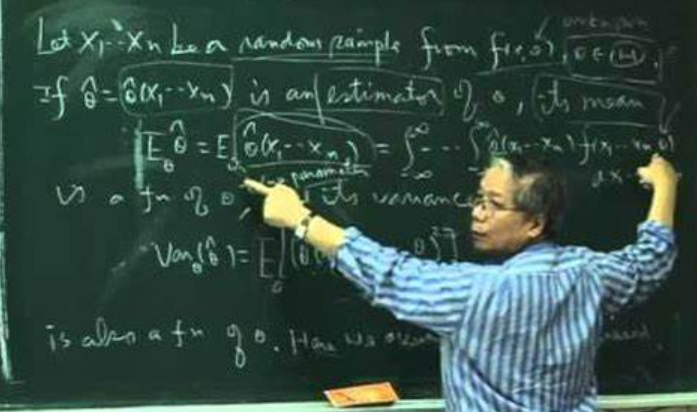 unknown
Let X₁⋯Xₙ be a random sample from f(x,θ), θ∈Ⓗ.
If θ̂ = θ̂(X₁⋯Xₙ) is an estimator of θ, its mean
E_θ θ̂ = E_θ θ̂(X₁⋯Xₙ) = ∫_{-∞}^{∞} ⋯ ∫_{-∞}^{∞} θ̂(x₁⋯xₙ) f(x₁⋯xₙ, θ)
parameter
dx₁
is a fn of θ, its variance
Var_θ(θ̂) = E_θ[(θ̂( θ)²]
is also a fn of θ. How